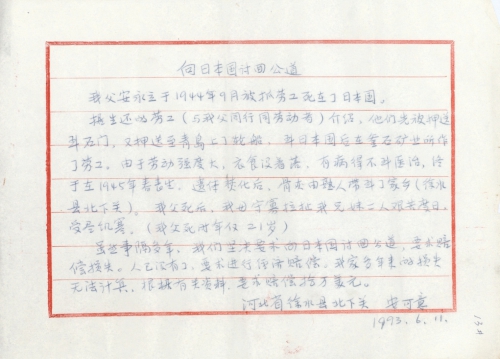 向日本国讨回公道
我父安永立于1944年9月被抓劳工死在了日本国。
据生还的劳工（与我父同行同劳动者）介绍，他们先被押送
到石门，又押送至青岛上了敌船，到日本国后在金石矿业所作
了劳工。由于劳动强度大，衣食没着落，有病得不到医治，终
于在1945年春丧生，遗体焚化后，骨灰由熟人带到了家乡（徐水
县北下关）。我父死后，我母守寡拉扯我兄妹二人艰关度日，
受尽饥寒。（我父死时年仅21岁）
虽然事隔多年，我们坚决要求向日本国讨回公道，要求赔
偿损失。人已没有了，要求进行经济赔偿，我家多年来的损失
无法计算，根据有关资料，要求赔偿拾万美元。
河北省徐水县北下关 安可意
1993.6.11.